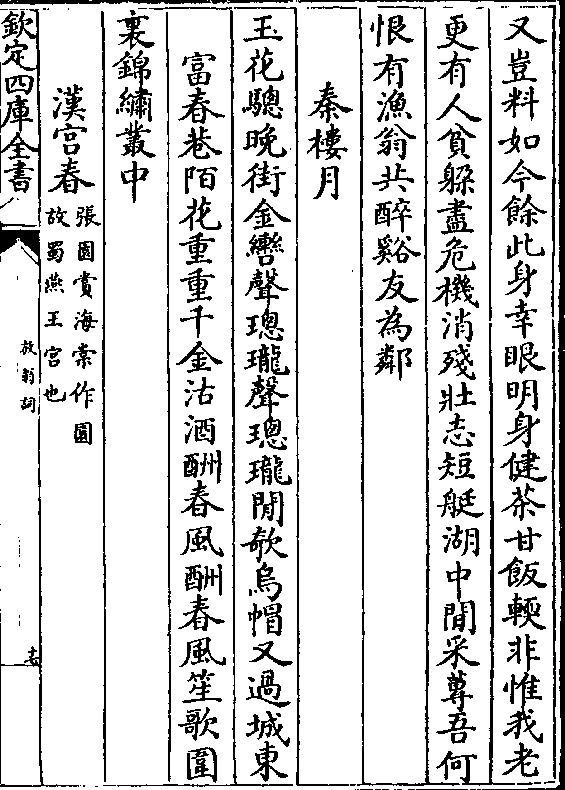 又豈料如今餘此身幸眼明身健茶甘飯輭非惟我老
更有人貧躱盡危機消殘壯志短艇湖中閒采蓴吾何
恨有漁翁共醉谿友為鄰
秦樓月
玉花驄晚街金轡聲璁瓏聲璁瓏閒欹烏帽又過城東
富春巷陌花重重千金沽酒酬春風酬春風笙歌圍
裏錦繡叢中
漢宮春
張園賞海棠作園
故蜀燕王宮也
欽定四庫全書
放翁詞